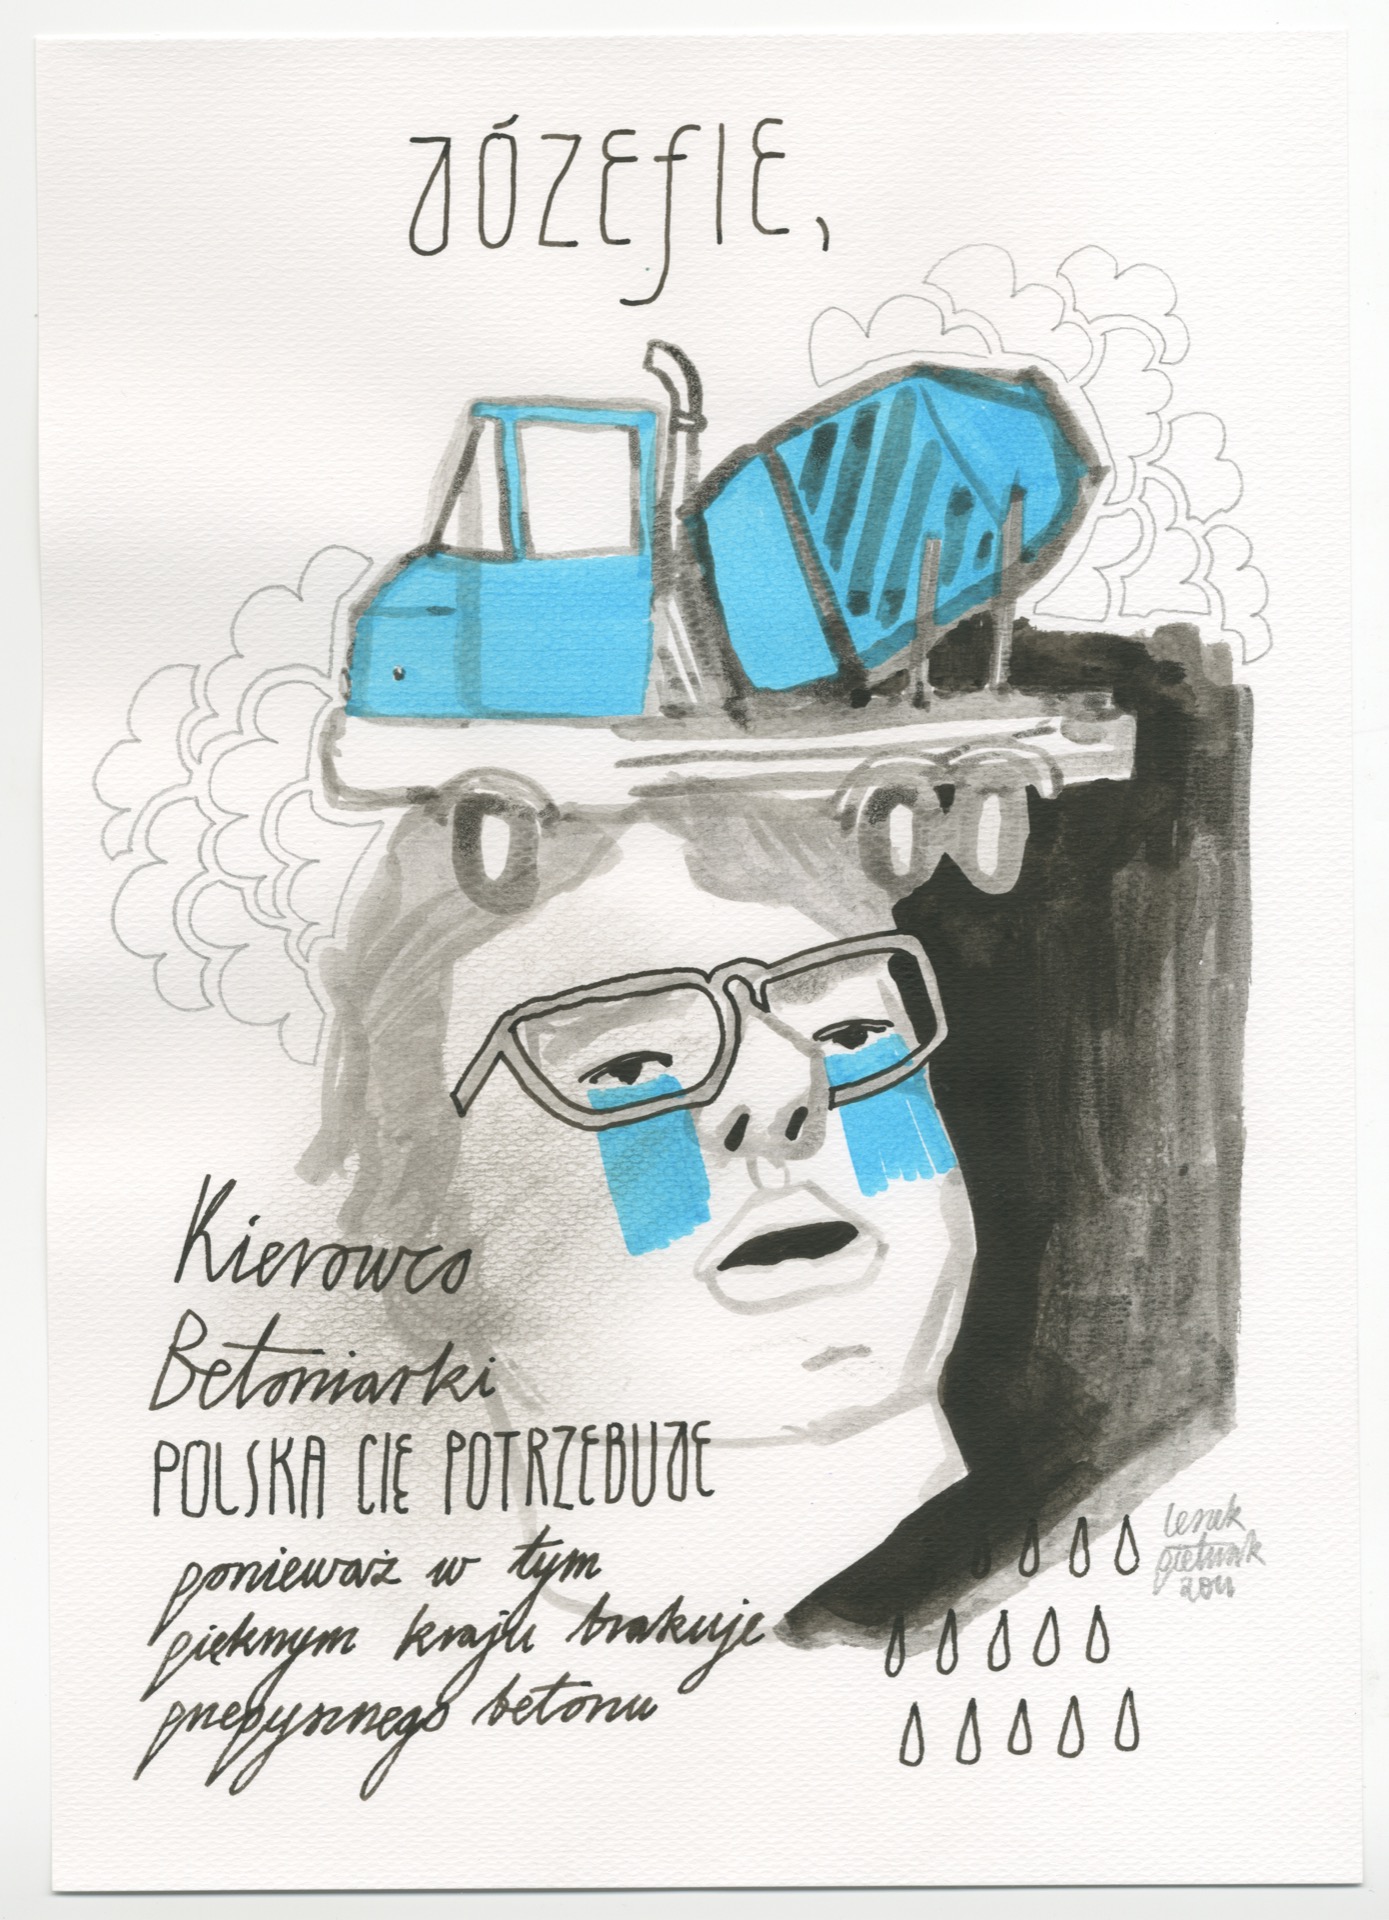 JÓZEfIE,
Kierowco
Betoniarki
POLSKA CIĘ POTRZEBUJE
ponieważ w tym
pięknym kraju brakuje
przepysznego betonu
leszek
pietrzak
2011